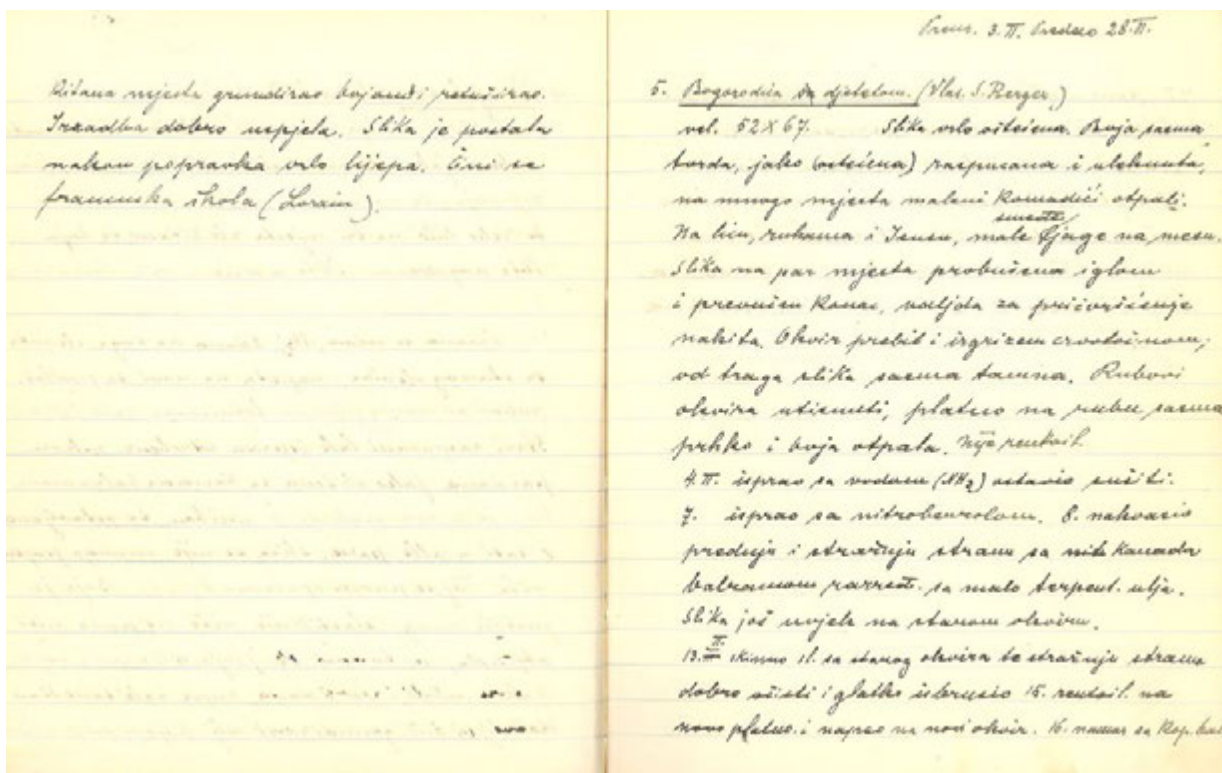 Kitana mjesta grundirao bojandi retuširao.
Izradba dobro uspjela. Slika je postala
nakon popravka vrlo lijepa. Čini se
francuska škola (Lorain).
Preuz. 3.II. Predano 28.II.
5. Bogorodica sa djetetom. (Vlas. S. Berger.)
vel. 52 X 67. Slika vrlo oštećena. Boja sasma
tvrda, jako (oštećena) raspucana i uleknuta,
na mnogo mjesta maleni komadići otpali.
Na licu, rukama i Isusu, male smeđe fjage na mesu.
Slika na par mjesta probušena iglom
i provučen konac, valjda za pričvršćenje
nakita. Okvir prebit i izgrizen crvotočinom;
od traga slika sasma tamna. Rubovi
okvira utisnuti, platno na rubu sasma
prhko i boja otpala. Nije rentoil.
4.II. isprao sa vodom (NH3) ostavio sušiti.
7. isprao sa nitrobenzolom. 8. nakvasio
prednju i stražnju stranu sa kanada
balzamom razređ. sa malo terpent. ulja.
Slika još uvjek na starom okviru.
13.II. skinuo sl. sa starog okvira te stražnju stranu
dobro očisti i glatko izbrusio 15. rentoil. na
novo platno. i napeo na novi okvir. 16. namaz sa Kop. bal